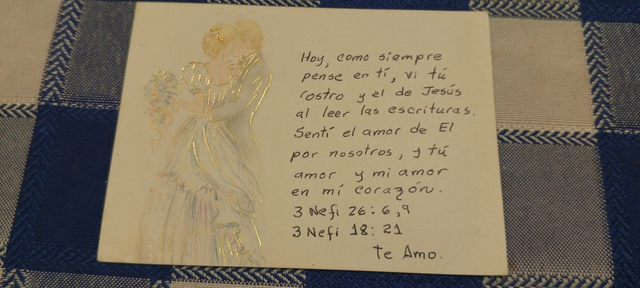 Hoy, como siempre
pense en tí, vi tú
rostro y el de Jesús
al leer las escrituras.
Sentí el amor de El
por nosotros, y tú
amor y mi amor
en mí corazón.
3 Nefi 26: 6,9
3 Nefi 18: 21
Te Amo.